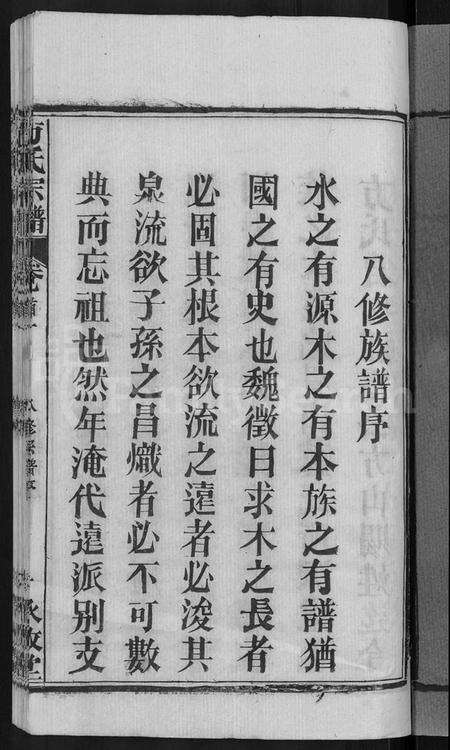 八修族譜序
水之有源木之有本族之有譜猶
國之有史也魏徵曰求木之長者
必固其根本欲流之遠者必浚其
泉流欲子孫之昌熾者必不可數
典而忘祖也然年淹代遠派别支
方氏宗譜
卷首
八修宗譜序